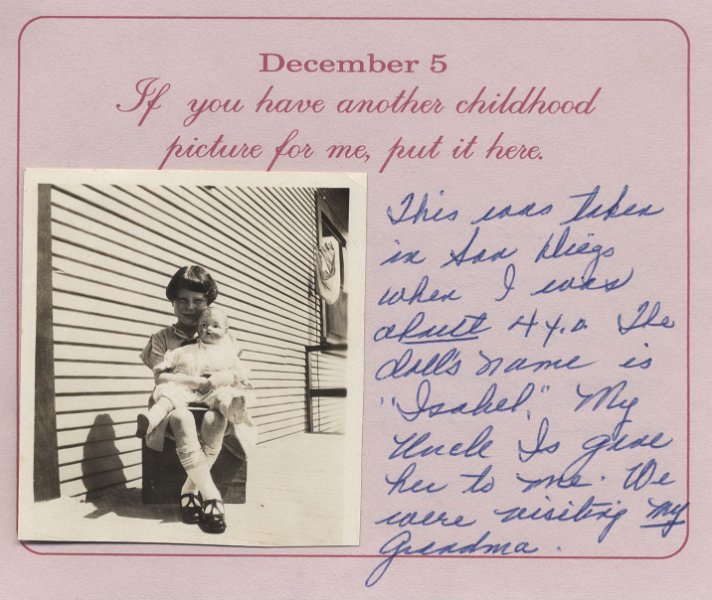 December 5
If you have another childhood
picture for me, put it here.
This was taken
in San Diego
when I was
about 4 y.o. The
doll's name is
"Isabel." My
Uncle Is gave
her to me. We
were visiting my
Grandma.